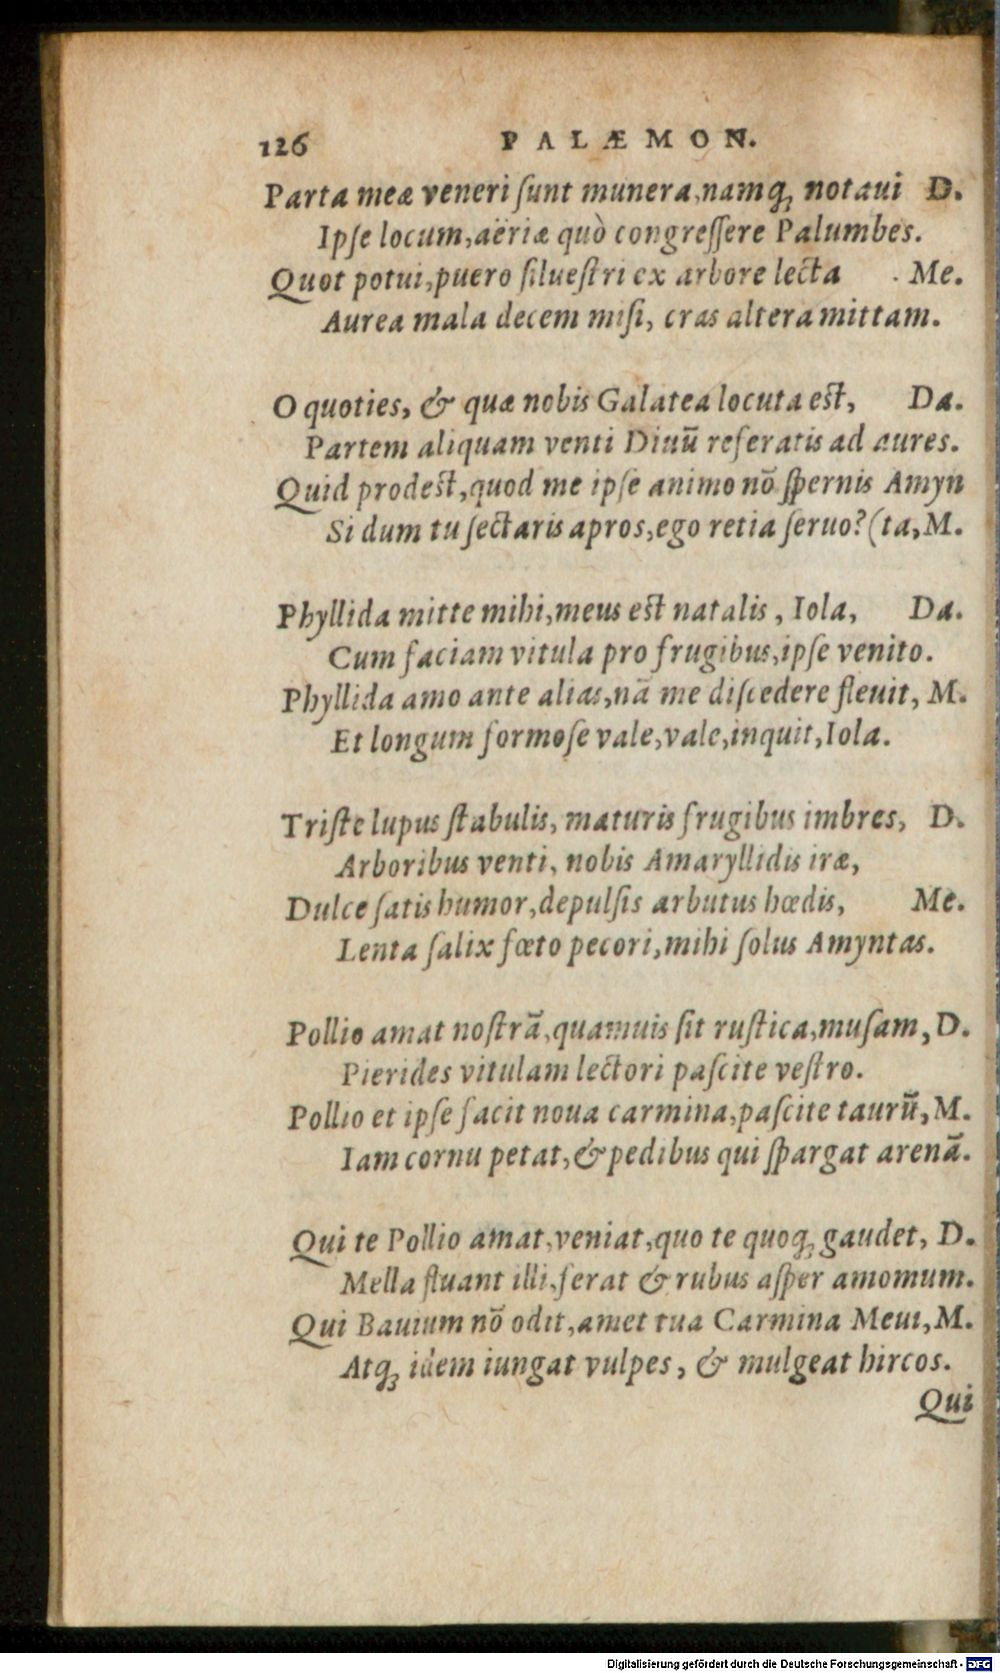 126 PALÆMON.
Parta meæ veneri ſunt munera,namq́; notaui D.
Ipſe locum,aëriæ quò congreſſere Palumbes.
Quot potui,puero ſilueſtri ex arbore lecta Me.
Aurea mala decem miſi, cras altera mittam.
O quoties, & quæ nobis Galatea locuta eſt, Da.
Partem aliquam venti Diuū referatis ad aures.
Quid prodeſt,quod me ipſe animo nō ſpernis Amyn
Si dum tu ſectaris apros,ego retia ſeruo?(ta,M.
Phyllida mitte mihi,meus eſt natalis, Iola, Da.
Cum faciam vitula pro frugibus,ipſe venito.
Phyllida amo ante alias,nā me diſcedere fleuit, M.
Et longum formoſe vale,vale,inquit,Iola.
Triſte lupus ſtabulis, maturis frugibus imbres, D.
Arboribus venti, nobis Amaryllidis iræ,
Dulce ſatis humor,depulſis arbutus hœdis, Me.
Lenta ſalix fœto pecori,mihi ſolus Amyntas.
Pollio amat noſtrā,quamuis ſit ruſtica,muſam, D.
Pierides vitulam lectori paſcite veſtro.
Pollio et ipſe facit noua carmina,paſcite taurū, M.
Iam cornu petat,& pedibus qui ſpargat arenā.
Qui te Pollio amat,veniat,quo te quoq; gaudet, D.
Mella fluant illi,ferat & rubus aſper amomum.
Qui Bauium nō odit,amet tua Carmina Meui,M.
Atq; idem iungat vulpes, & mulgeat hircos.
Qui
Digitalisierung gefördert durch die Deutsche Forschungsgemeinschaft - DFG